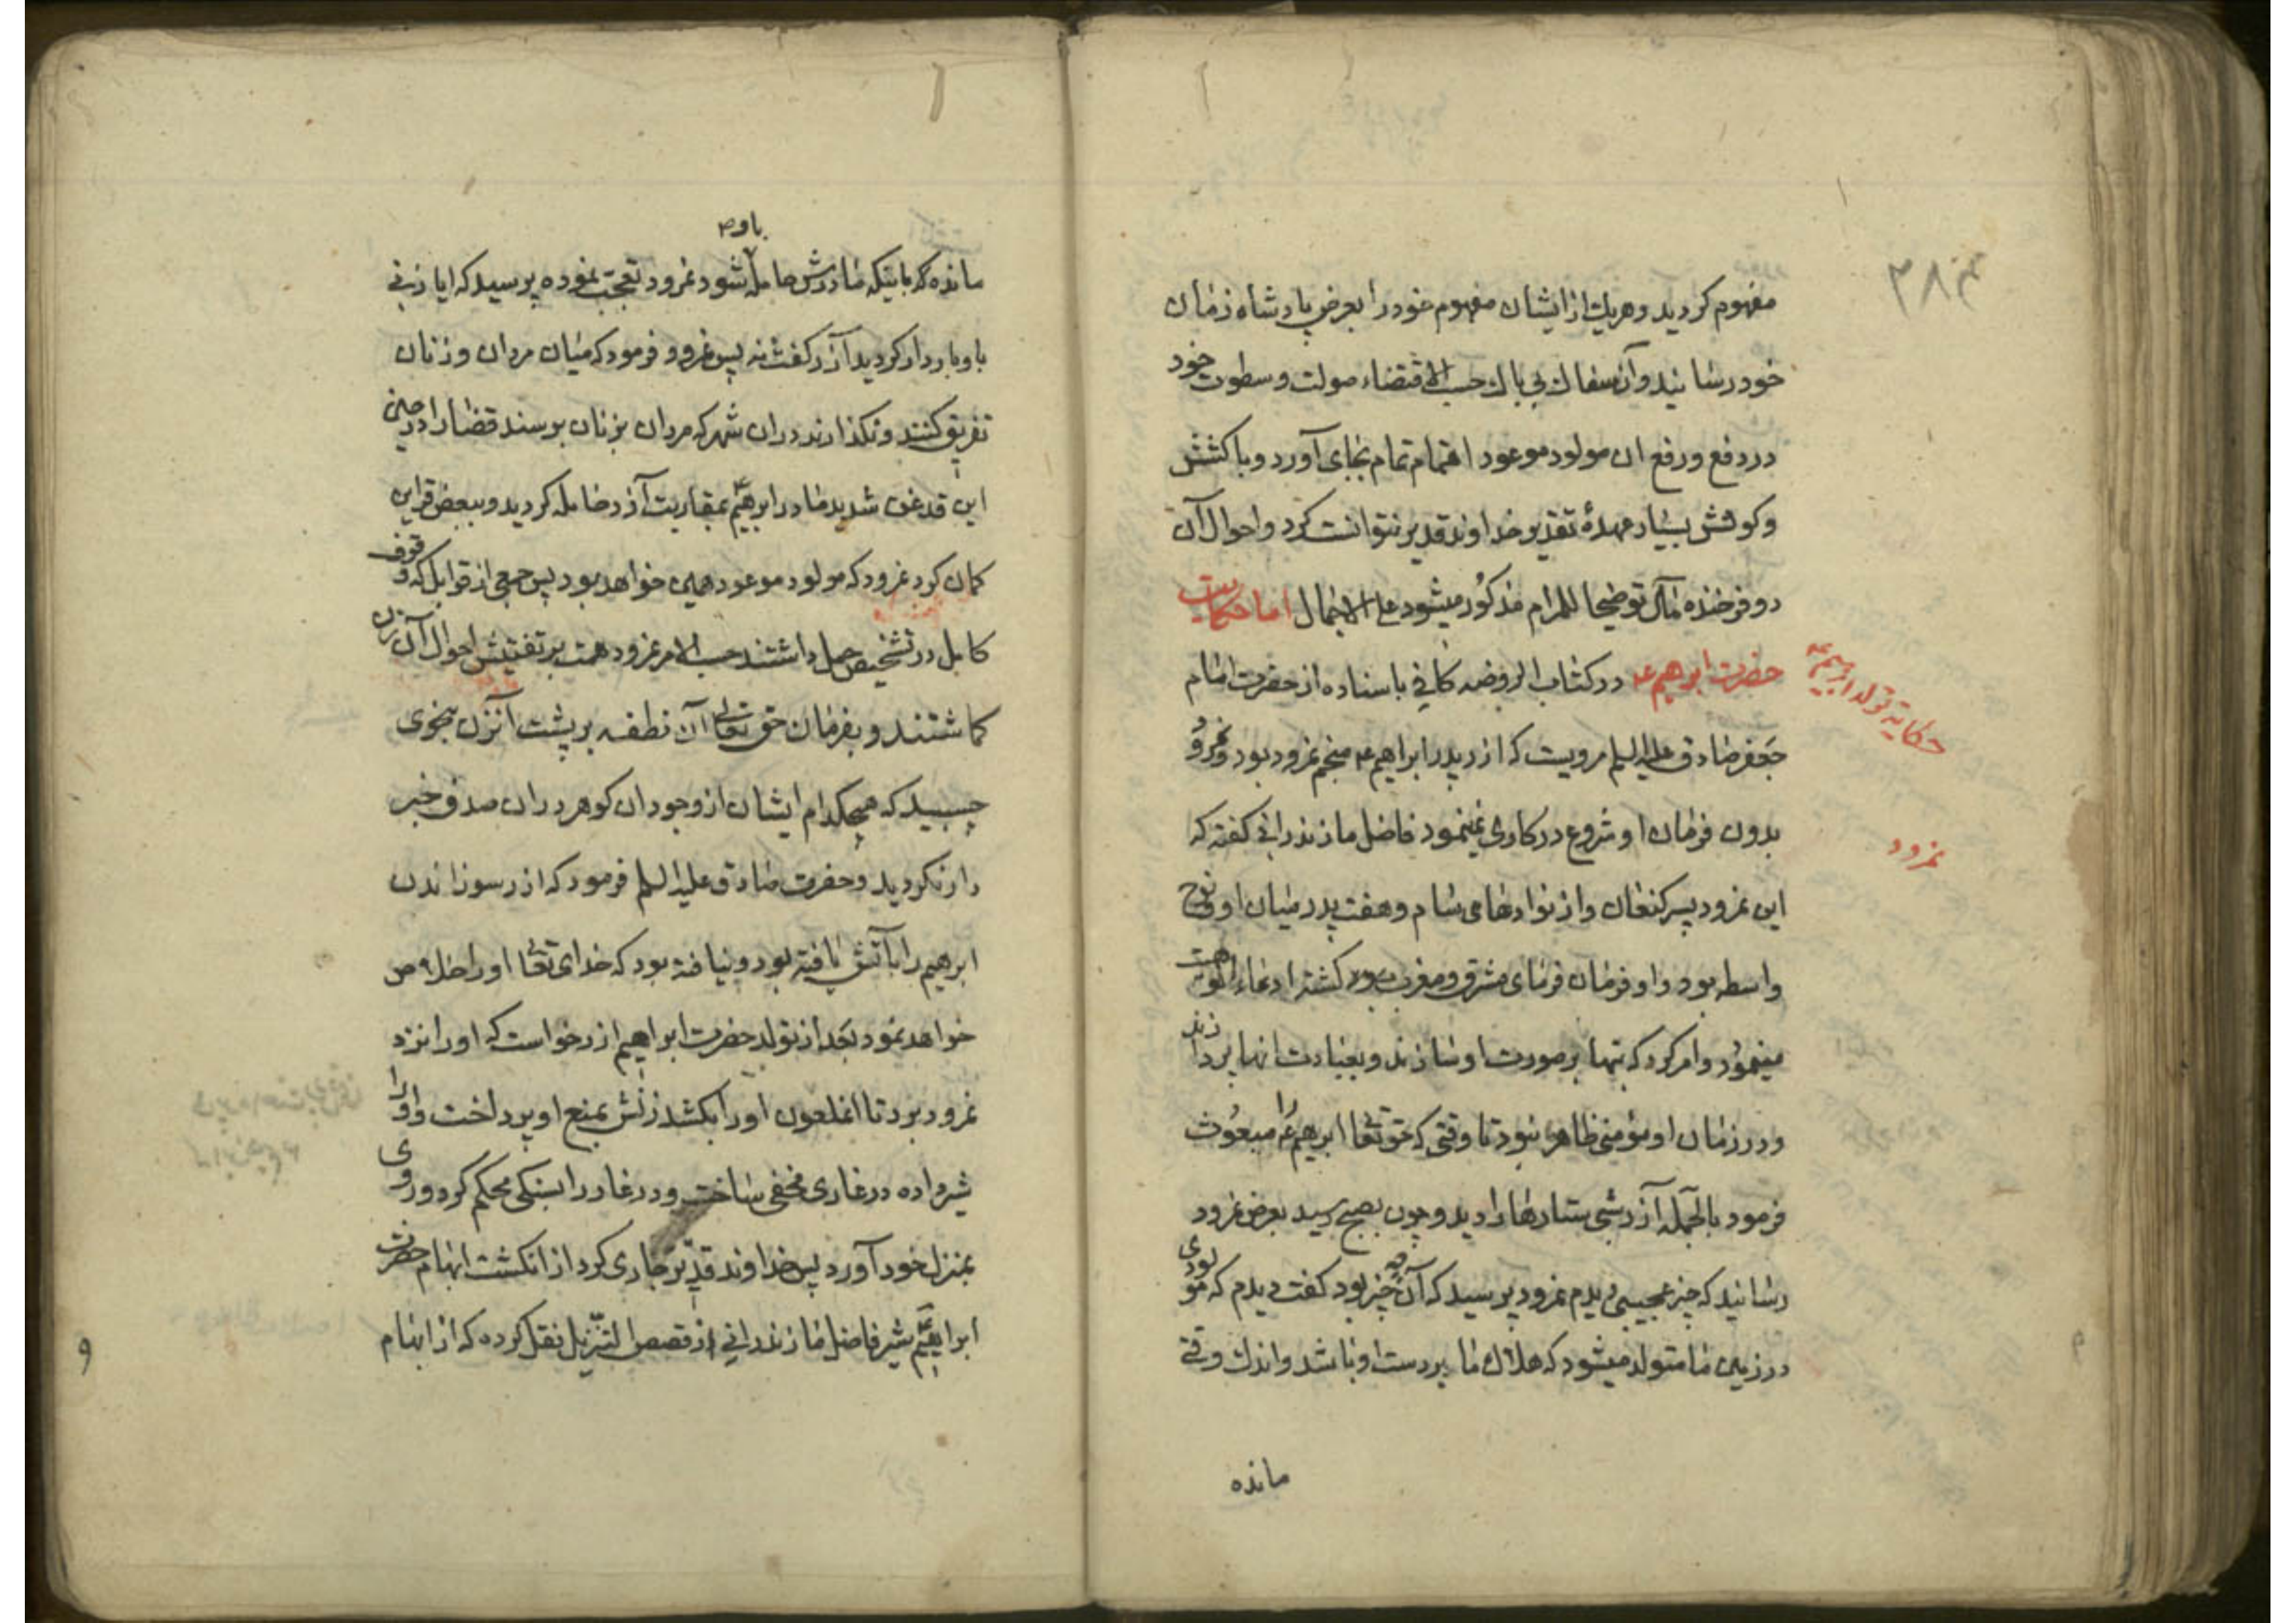 مفهوم کردید وهریک از ایشان مفهوم خود را بعرض پادشاه زمان
خود رسانید وآن سفاک بی باک حسب الاقتضاء صولت وسطوت خود
در دفع ورفع ان مولود موعود اهتمام تمام بجای آورد وبا کشش
وکوشش بسیار عهدهٔ تقدیر خداوند قدیر نتوانست کرد واحوال آن
دو فرخنده مآل توضیحا للمرام مذکور میشود علی الاجمال اما حکایت
حضرت ابرهیم ع در کتاب الروضه کافی باسناده از حضرت امام
جعفر صادق علیه السلم مرویست که ازر پدر ابراهیم ع منجم نمرود بود ونمرود
بدون فرمان او شروع در کاری نمینمود فاضل مازندرانی کفته که
این نمرود پسر کنعان واز نوادهای سام وهفت پدر میان او ونوح
واسطه بود واو فرمان فرمای مشرق ومغرب کشته ادعاء الوهیت
مینمود وامر کرد که بتها بر صورت او سازند وبعبادت انها پردازند
ودر زمان او مؤمنی ظاهرا نبود تا وقتی که حقتعا ابرهیم ع را مبعوث
فرمود بالجمله آزر شبی ستارها را دید وچون بصبح رسید بعرض نمرود
رسانید که چیز عجیبی دیدم نمرود پرسید که آن چه چیز بود کفت دیدم که مولودی
در زمین ما متولد میشود که هلاک ما بر دست او باشد واندک وقتی
مانده
حکایة تولد ابرهیم ع
نمرود
۳۸
باو
مانده که باینکه مادرش حامله شود نمرود تعجب نموده پرسید که ایا زنی
باو باردار کردید آزر کفت نه پس نمرود فرمود که میان مردان وزنان
تفریق کنند ونکذارند دران شهر که مردان بزنان برسند قضا را در حین
این قدغن شدید مادر ابرهیم ع بمقاربت آزر حامله کردید وببعض قراین
کمان کرد نمرود که مولود موعود همین خواهد بود پس جمعی از قوابل که وقوف
کامل در تشخیص حمل داشتند حسب الامر نمرود همت بر تفتیش احوال آن زن
کماشتند وبفرمان حق تعالی آن نطفه بر پشت آنزن بنحوی
چسبید که هیچکدام ایشان از وجود ان کوهر دران صدف خبر
دار نکردید وحضرت صادق علیه السلم فرمود که ازر سوزاندن
ابرهیم را باتش یافته بود ونیافته بود که خدای تعا او را خلاص
خواهد نمود بعد از تولد حضرت ابراهیم ازر خواست که او را نزد
نمرود برد تا انملعون او را بکشد زنش بمنع او پرداخت واو را
شیر داده در غاری مخفی ساخت ودر غار را بسنکی محکم کرد وروی
بمنزل خود آورد پس خداوند قدیر جاری کرد از انکشت ابهام حضرت
ابراهیم ع شیر فاضل مازندرانی از قصص التنزیل نقل کرده که از ابهام